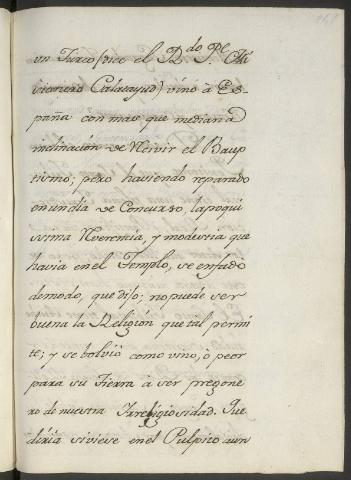 un Turco (dice el R.do P.e Mi
sionero Calatayud) vino à Es-
paña con mas que mediana
inclinacion de Recivir el Baup
tismo; pero haviendo reparado
en un dia de Concurso, la poqui
ssima Reverencia, y modestia que
havia en el Templo, se enfado
de modo, que dijo; no puede ser
buena la Religión que tal permi
te; y se bolvió como vino, ò peor
para su Tierra à ser pregone
ro de nuestra Irreligiosidad. Que
diria si viese en el Pulpito aun